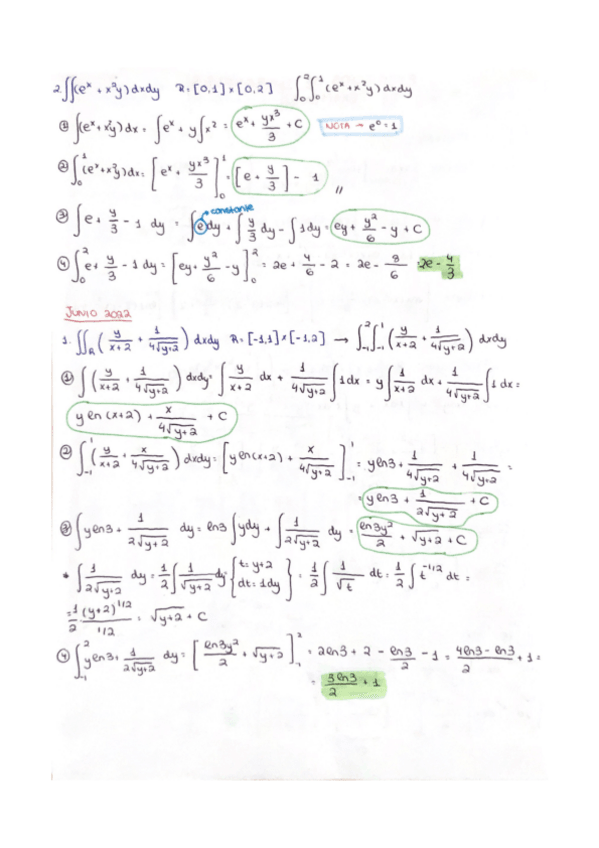 2. ∬(eˣ + x²y) dxdy   R = [0,1] × [0,2]   ∫₀² ∫₀¹ (eˣ + x²y) dxdy
① ∫(eˣ + x²y) dx = ∫eˣ + y∫x² = eˣ + yx³/3 + C   NOTA → e⁰ = 1
② ∫₀¹ (eˣ + x²y) dx = [eˣ + yx³/3]₀¹ = [e + y/3] - 1 //
constante
③ ∫e + y/3 - 1 dy = ∫e dy + ∫y/3 dy - ∫1dy = ey + y²/6 - y + C
④ ∫₀² e + y/3 - 1 dy = [ey + y²/6 - y]₀² = 2e + 4/6 - 2 = 2e - 8/6 = 2e - 4/3
JUNIO 2022
1. ∬_R (y/(x+2) + 1/(4√(y+2))) dxdy   R = [-1,1] × [-1,2] → ∫₋₁² ∫₋₁¹ (y/(x+2) + 1/(4√(y+2))) dxdy
① ∫(y/(x+2) + 1/(4√(y+2))) dxdy = ∫ y/(x+2) dx + 1/(4√(y+2)) ∫1dx = y∫ 1/(x+2) dx + 1/(4√(y+2)) ∫1 dx =
y ln(x+2) + x/(4√(y+2)) + C
② ∫₋₁¹ (y/(x+2) + x/(4√(y+2))) dxdy = [y ln(x+2) + x/(4√(y+2))]₋₁¹ = y ln3 + 1/(4√(y+2)) + 1/(4√(y+2)) =
= y ln3 + 1/(2√(y+2)) + C
③ ∫y ln3 + 1/(2√(y+2)) dy = ln3 ∫ydy + ∫ 1/(2√(y+2)) dy = ln3y²/2 + √(y+2) + C
* ∫ 1/(2√(y+2)) dy = 1/2 ∫ 1/√(y+2) dy {t = y+2 dt = 1dy} = 1/2 ∫ 1/√t dt = 1/2 ∫ t^(-1/2) dt =
= 1/2 (y+2)^(1/2)/(1/2) = √(y+2) + C
④ ∫₋₁² y ln3 + 1/(2√(y+2)) dy = [ln3y²/2 + √(y+2)]₋₁² = 2ln3 + 2 - ln3/2 - 1 = (4ln3 - ln3)/2 + 1 =
= 3ln3/2 + 1